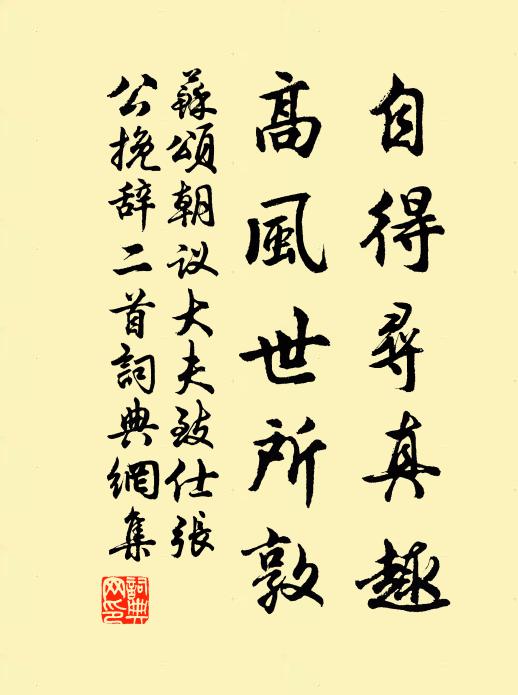 自得尋真趣
高風世所敦
蘇頌朝议大夫致仕張
公挽辞二首詞典網集
詞典
网印